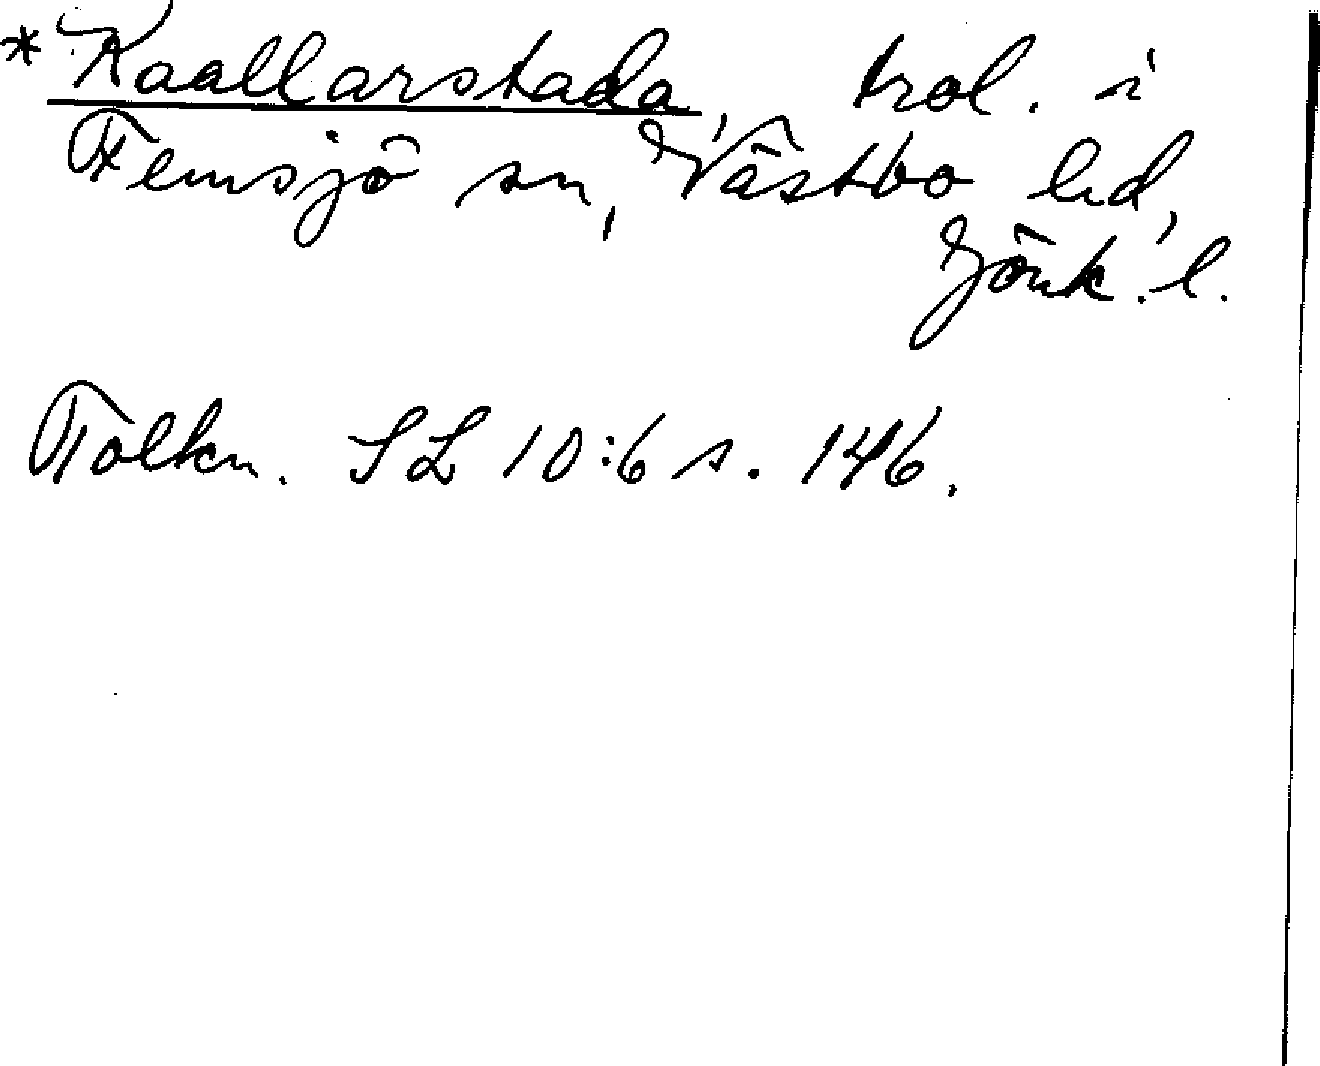 *Kaallarstada, trol. i
Femsjö sn, Västbo hd,
Jönk. l.
Tolkn. SL 10:6 s. 146.